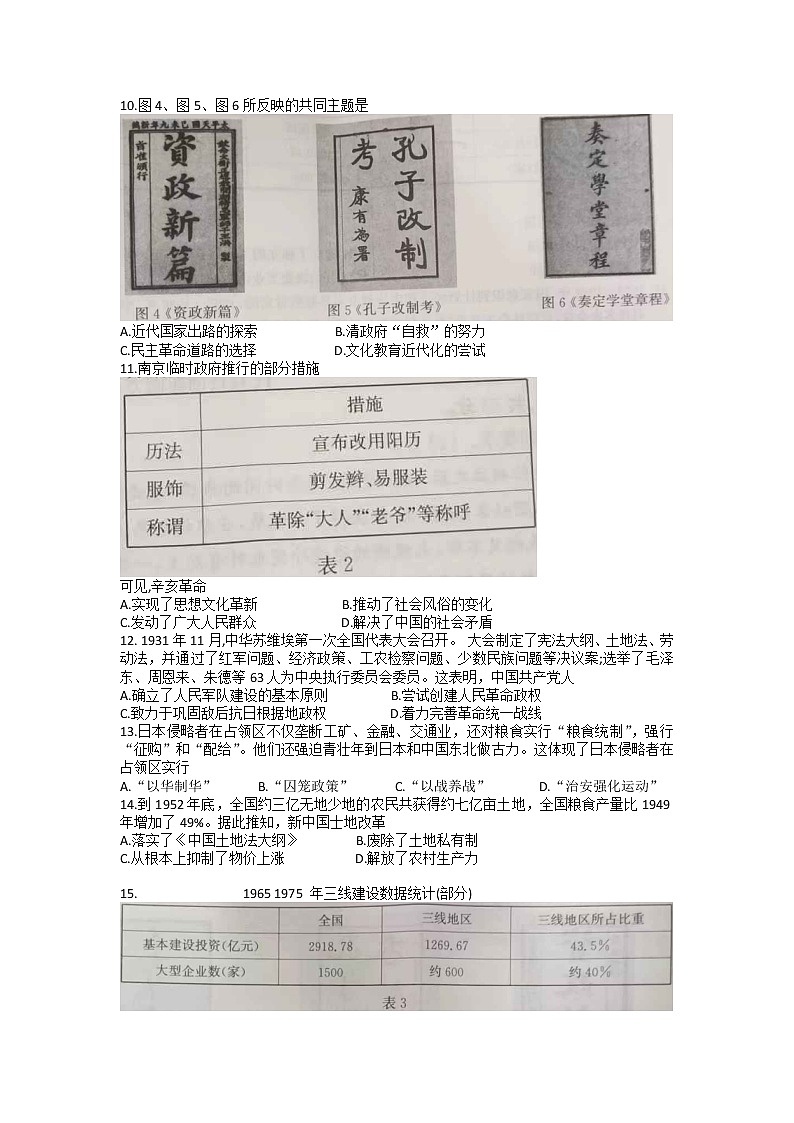 10.图4、图5、图6所反映的共同主题是
太平天国己未九年新镌
資政新篇
旨准頒行
孔子改制
考
康有為署
奏定學堂章程
图4《资政新篇》
图5《孔子改制考》
图6《奏定学堂章程》
A.近代国家出路的探索 B.清政府“自救”的努力
C.民主革命道路的选择 D.文化教育近代化的尝试
11.南京临时政府推行的部分措施
措施
历法 宣布改用阳历
服饰 剪发辫、易服装
称谓 革除“大人”“老爷”等称呼
表2
可见,辛亥革命
A.实现了思想文化革新 B.推动了社会风俗的变化
C.发动了广大人民群众 D.解决了中国的社会矛盾
12. 1931年11月,中华苏维埃第一次全国代表大会召开。 大会制定了宪法大纲、土地法、劳
动法，并通过了红军问题、经济政策、工农检察问题、少数民族问题等决议案;选举了毛泽
东、周恩来、朱德等63人为中央执行委员会委员。这表明，中国共产党人
A.确立了人民军队建设的基本原则 B.尝试创建人民革命政权
C.致力于巩固敌后抗日根据地政权 D.着力完善革命统一战线
13.日本侵略者在占领区不仅垄断工矿、金融、交通业，还对粮食实行“粮食统制”，强行
“征购”和“配给”。他们还强迫青壮年到日本和中国东北做古力。这体现了日本侵略者在
占领区实行
A.“以华制华” B.“囚笼政策” C.“以战养战” D.“治安强化运动”
14.到1952年底，全国约三亿无地少地的农民共获得约七亿亩土地，全国粮食产量比1949
年增加了49%。据此推知，新中国士地改革
A.落实了《中国土地法大纲》 B.废除了土地私有制
C.从根本上抑制了物价上涨 D.解放了农村生产力
15. 1965 1975 年三线建设数据统计(部分)
全国 三线地区 三线地区所占比重
基本建设投资(亿元) 2918.78 1269.67 43.5%
大型企业数(家) 1500 约600 约40%
表3